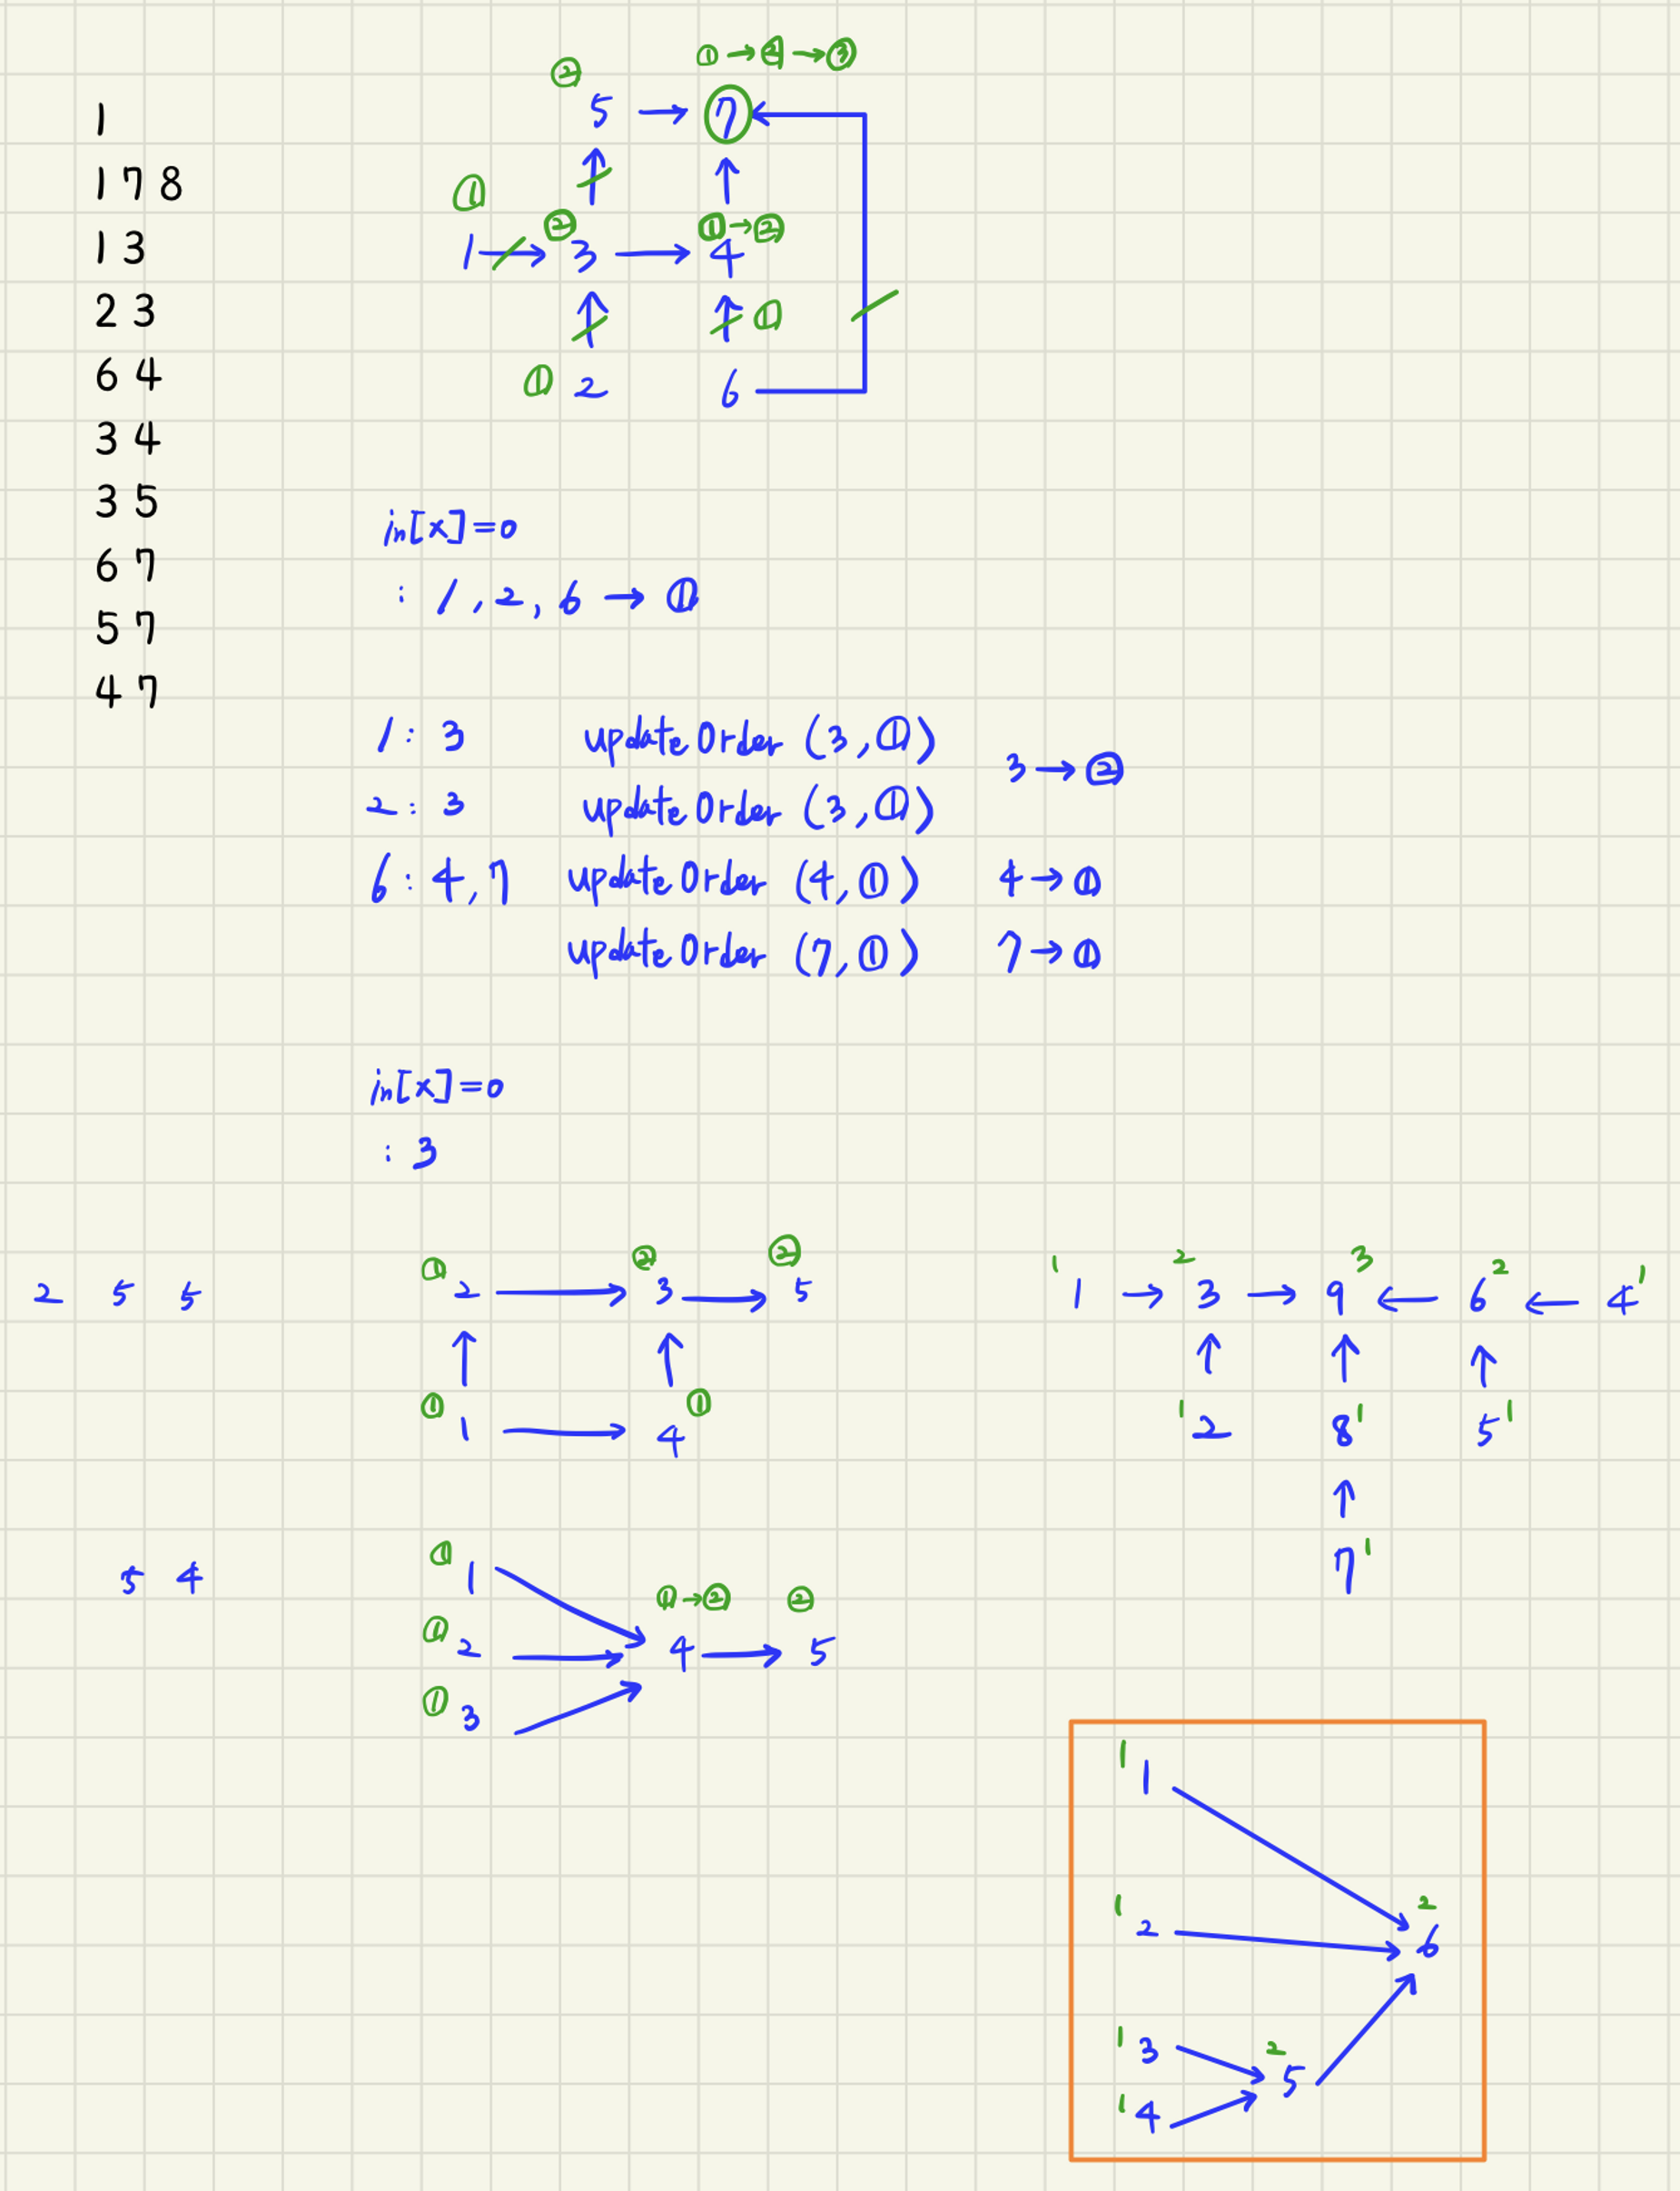 1
1 7 8
1 3
2 3
6 4
3 4
3 5
6 7
5 7
4 7
② ① → ② → ③
5 → 7
① ② ① → ②
1 → 3 → 4
①
① 2 6
in[x]=0
: 1, 2, 6 → ①
1 : 3 update Order (3, ①)
3 → ②
2 : 3 update Order (3, ①)
6 : 4, 7 update Order (4, ①) 4 → ①
update Order (7, ①) 7 → ①
in[x]=0
: 3
2 5 5
① ② ②
2 → 3 → 5
① ①
1 → 4
1 2 3 2 1
1 → 3 → 9 ← 6 ← 4
1 1 1
2 8 5
1
7
5 4
① 1
① → ② ②
① 2 → 4 → 5
① 3
1
1
1 2
2 6
1 3 2
5
1 4